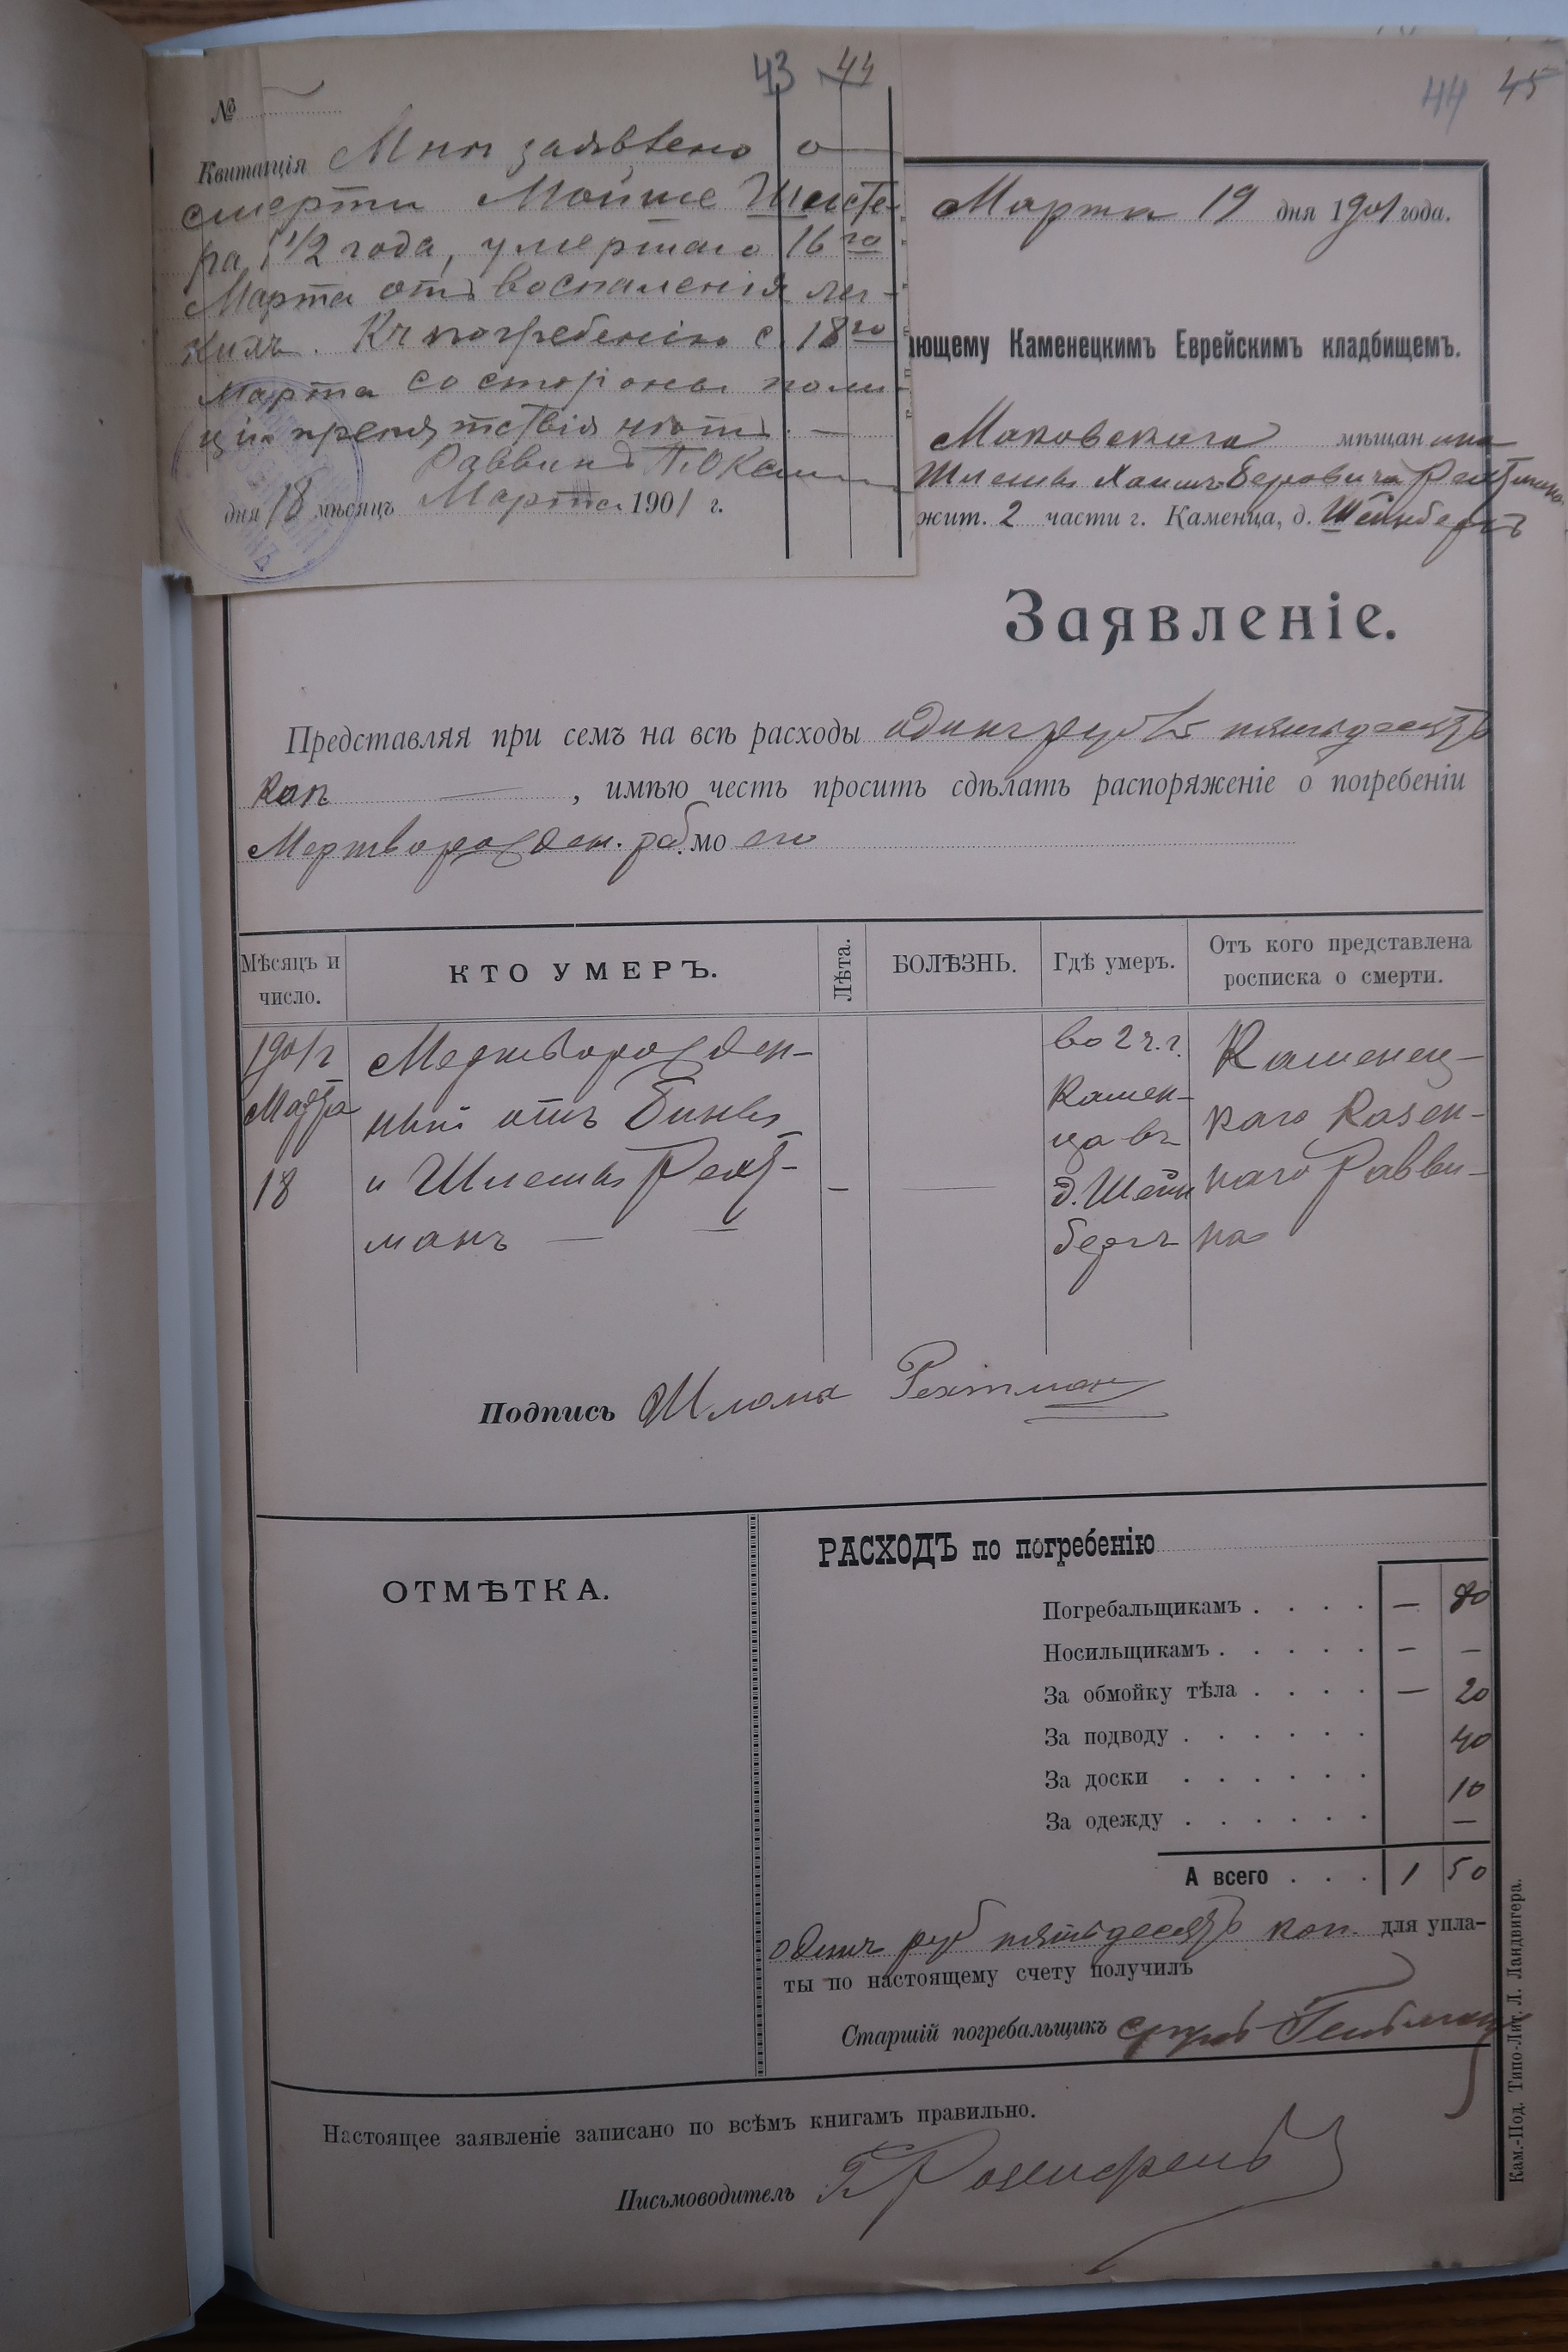 43 44
44 45
№
Квитанція Мнѣ заявлено о
смерти Мойше Шихте-
ра 1 1/2 года, умершаго 16го
Марта отъ воспаленія лег-
кихъ. Къ погребенію с. 18го
Марта со стороны поли-
ціи препятствія нѣтъ. —
Раввинъ
дня 18 мѣсяцъ Марта 1901 г.
Марта 19 дня 1901 года.
ющему Каменецкимъ Еврейскимъ кладбищемъ.
Маковскаго мѣщанина
Шлемы Хаимъ-Беровича Рехтмана
жит. 2 части г. Каменца, д. Штейнбергъ
Заявленіе.
Представляя при семъ на всѣ расходы одинъ рубль пятьдесятъ
коп — , имѣю честь просить сдѣлать распоряженіе о погребеніи
Мертворожден. реб. моего
Мѣсяцъ и число.
КТО УМЕРЪ.
Лѣта.
БОЛѢЗНЬ.
Гдѣ умеръ.
Отъ кого представлена росписка о смерти.
1901 г Марта 18
Мертворожден-
ный отъ
и Шлемы Рехт-
манъ —
—
—
во 2 ч. г.
Камен-
ца въ
д. Штейн
бергъ
Каменец-
каго Казен-
наго Равви-
на
Подпись Шлома Рехтман
ОТМѢТКА.
РАСХОДЪ по погребенію
Погребальщикамъ . . . . — 80
Носильщикамъ . . . . . — —
За обмойку тѣла . . . . — 20
За подводу . . . . . . 40
За доски . . . . . . 10
За одежду . . . . . . —
А всего . . . 1 50
одинъ руб пятьдесятъ коп. для упла-
ты по настоящему счету получилъ
Старшій погребальщикъ
Настоящее заявленіе записано по всѣмъ книгамъ правильно.
Письмоводитель
Кам.-Под. Типо-Лит. Л. Ландвигера.